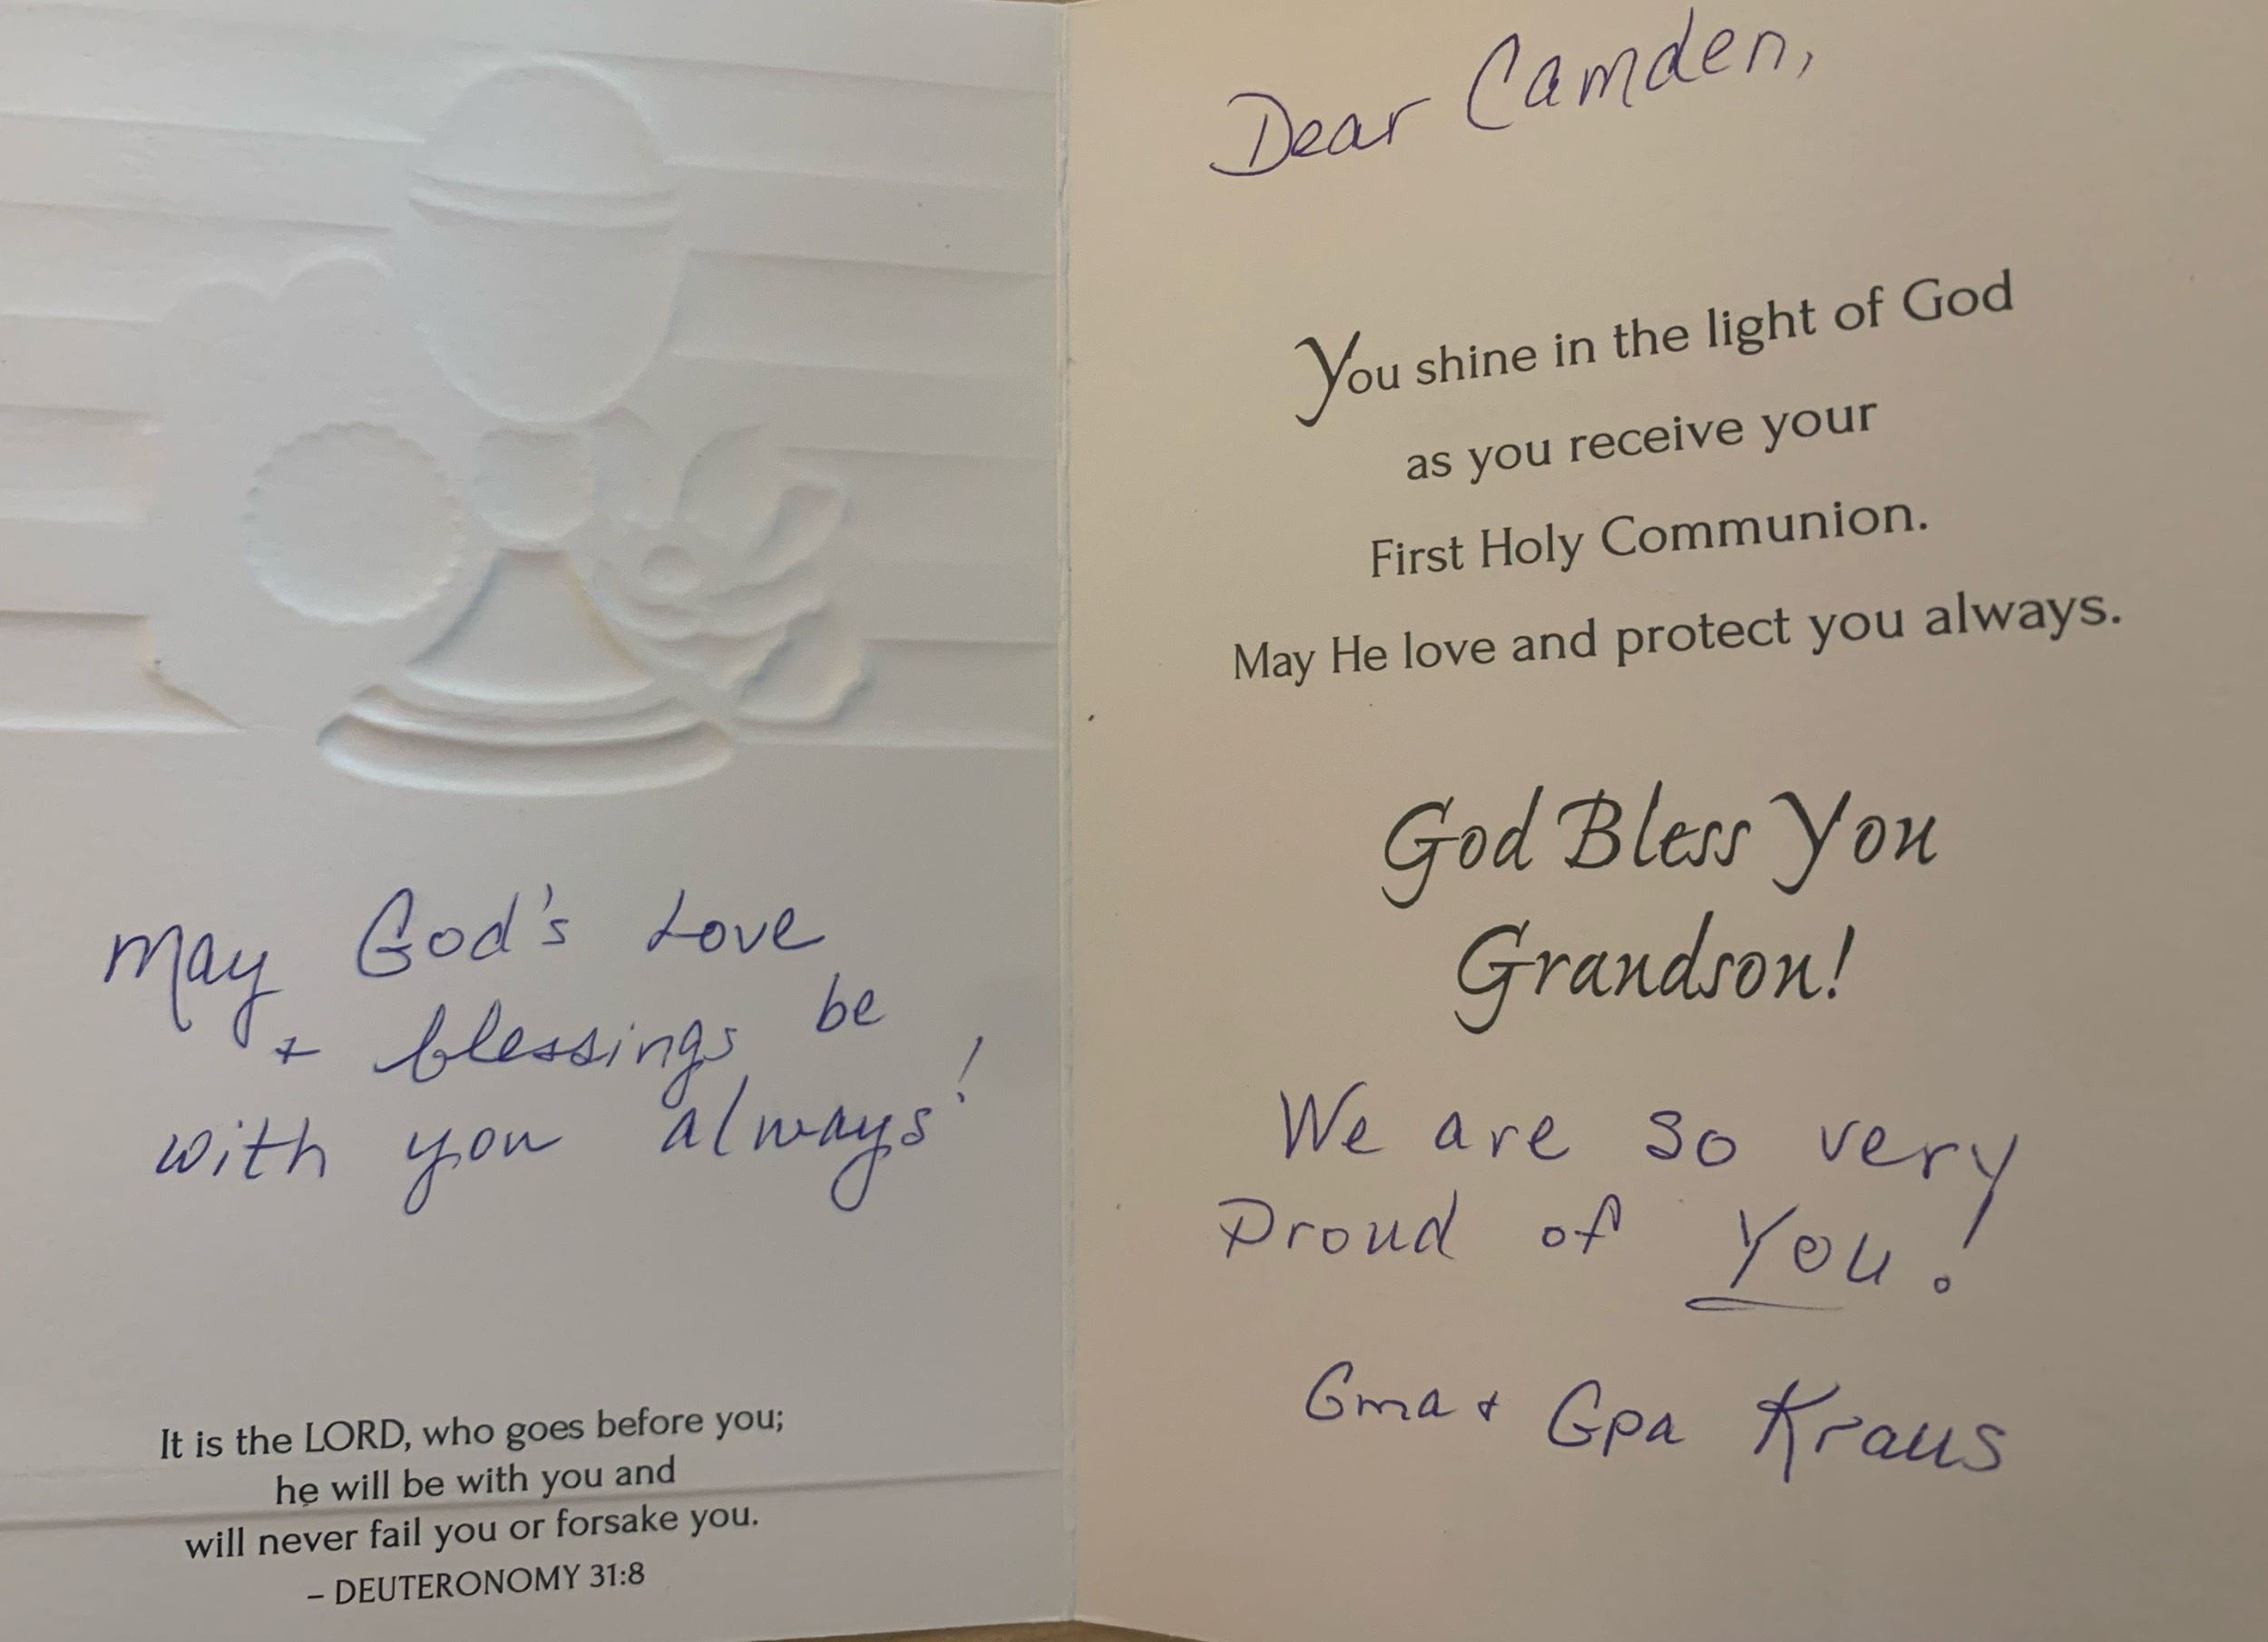 May God's Love
+ blessings be
with you always!
It is the LORD, who goes before you;
he will be with you and
will never fail you or forsake you.
– DEUTERONOMY 31:8
Dear Camden,
You shine in the light of God
as you receive your
First Holy Communion.
May He love and protect you always.
God Bless You
Grandson!
We are so very
Proud of You!
Gma + Gpa Kraus